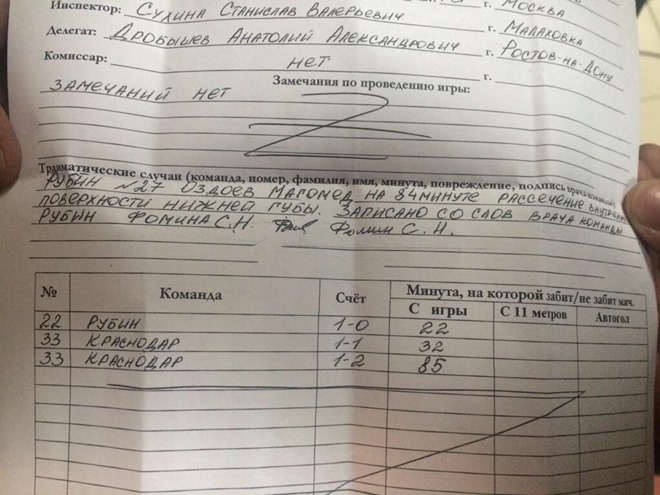 Инспектор: Сухина Станислав Валерьевич г. Москва
Делегат: Дробышев Анатолий Александрович г. Малаховка
Комиссар: нет г. Ростов-на-Дону
Замечания по проведению игры:
Замечаний нет
Травматические случаи (команда, номер, фамилия, имя, минута, повреждение, подпись врача команды)
Рубин №27 Оздоев Магомед на 84 минуте рассечение внутренней
поверхности нижней губы. Записано со слов врача команды
Рубин Фомина С.Н. Фомин С.Н.
№ Команда Счёт Минута, на которой забит/не забит мяч.
С игры С 11 метров Автогол
22 Рубин 1-0 22
33 Краснодар 1-1 32
33 Краснодар 1-2 85